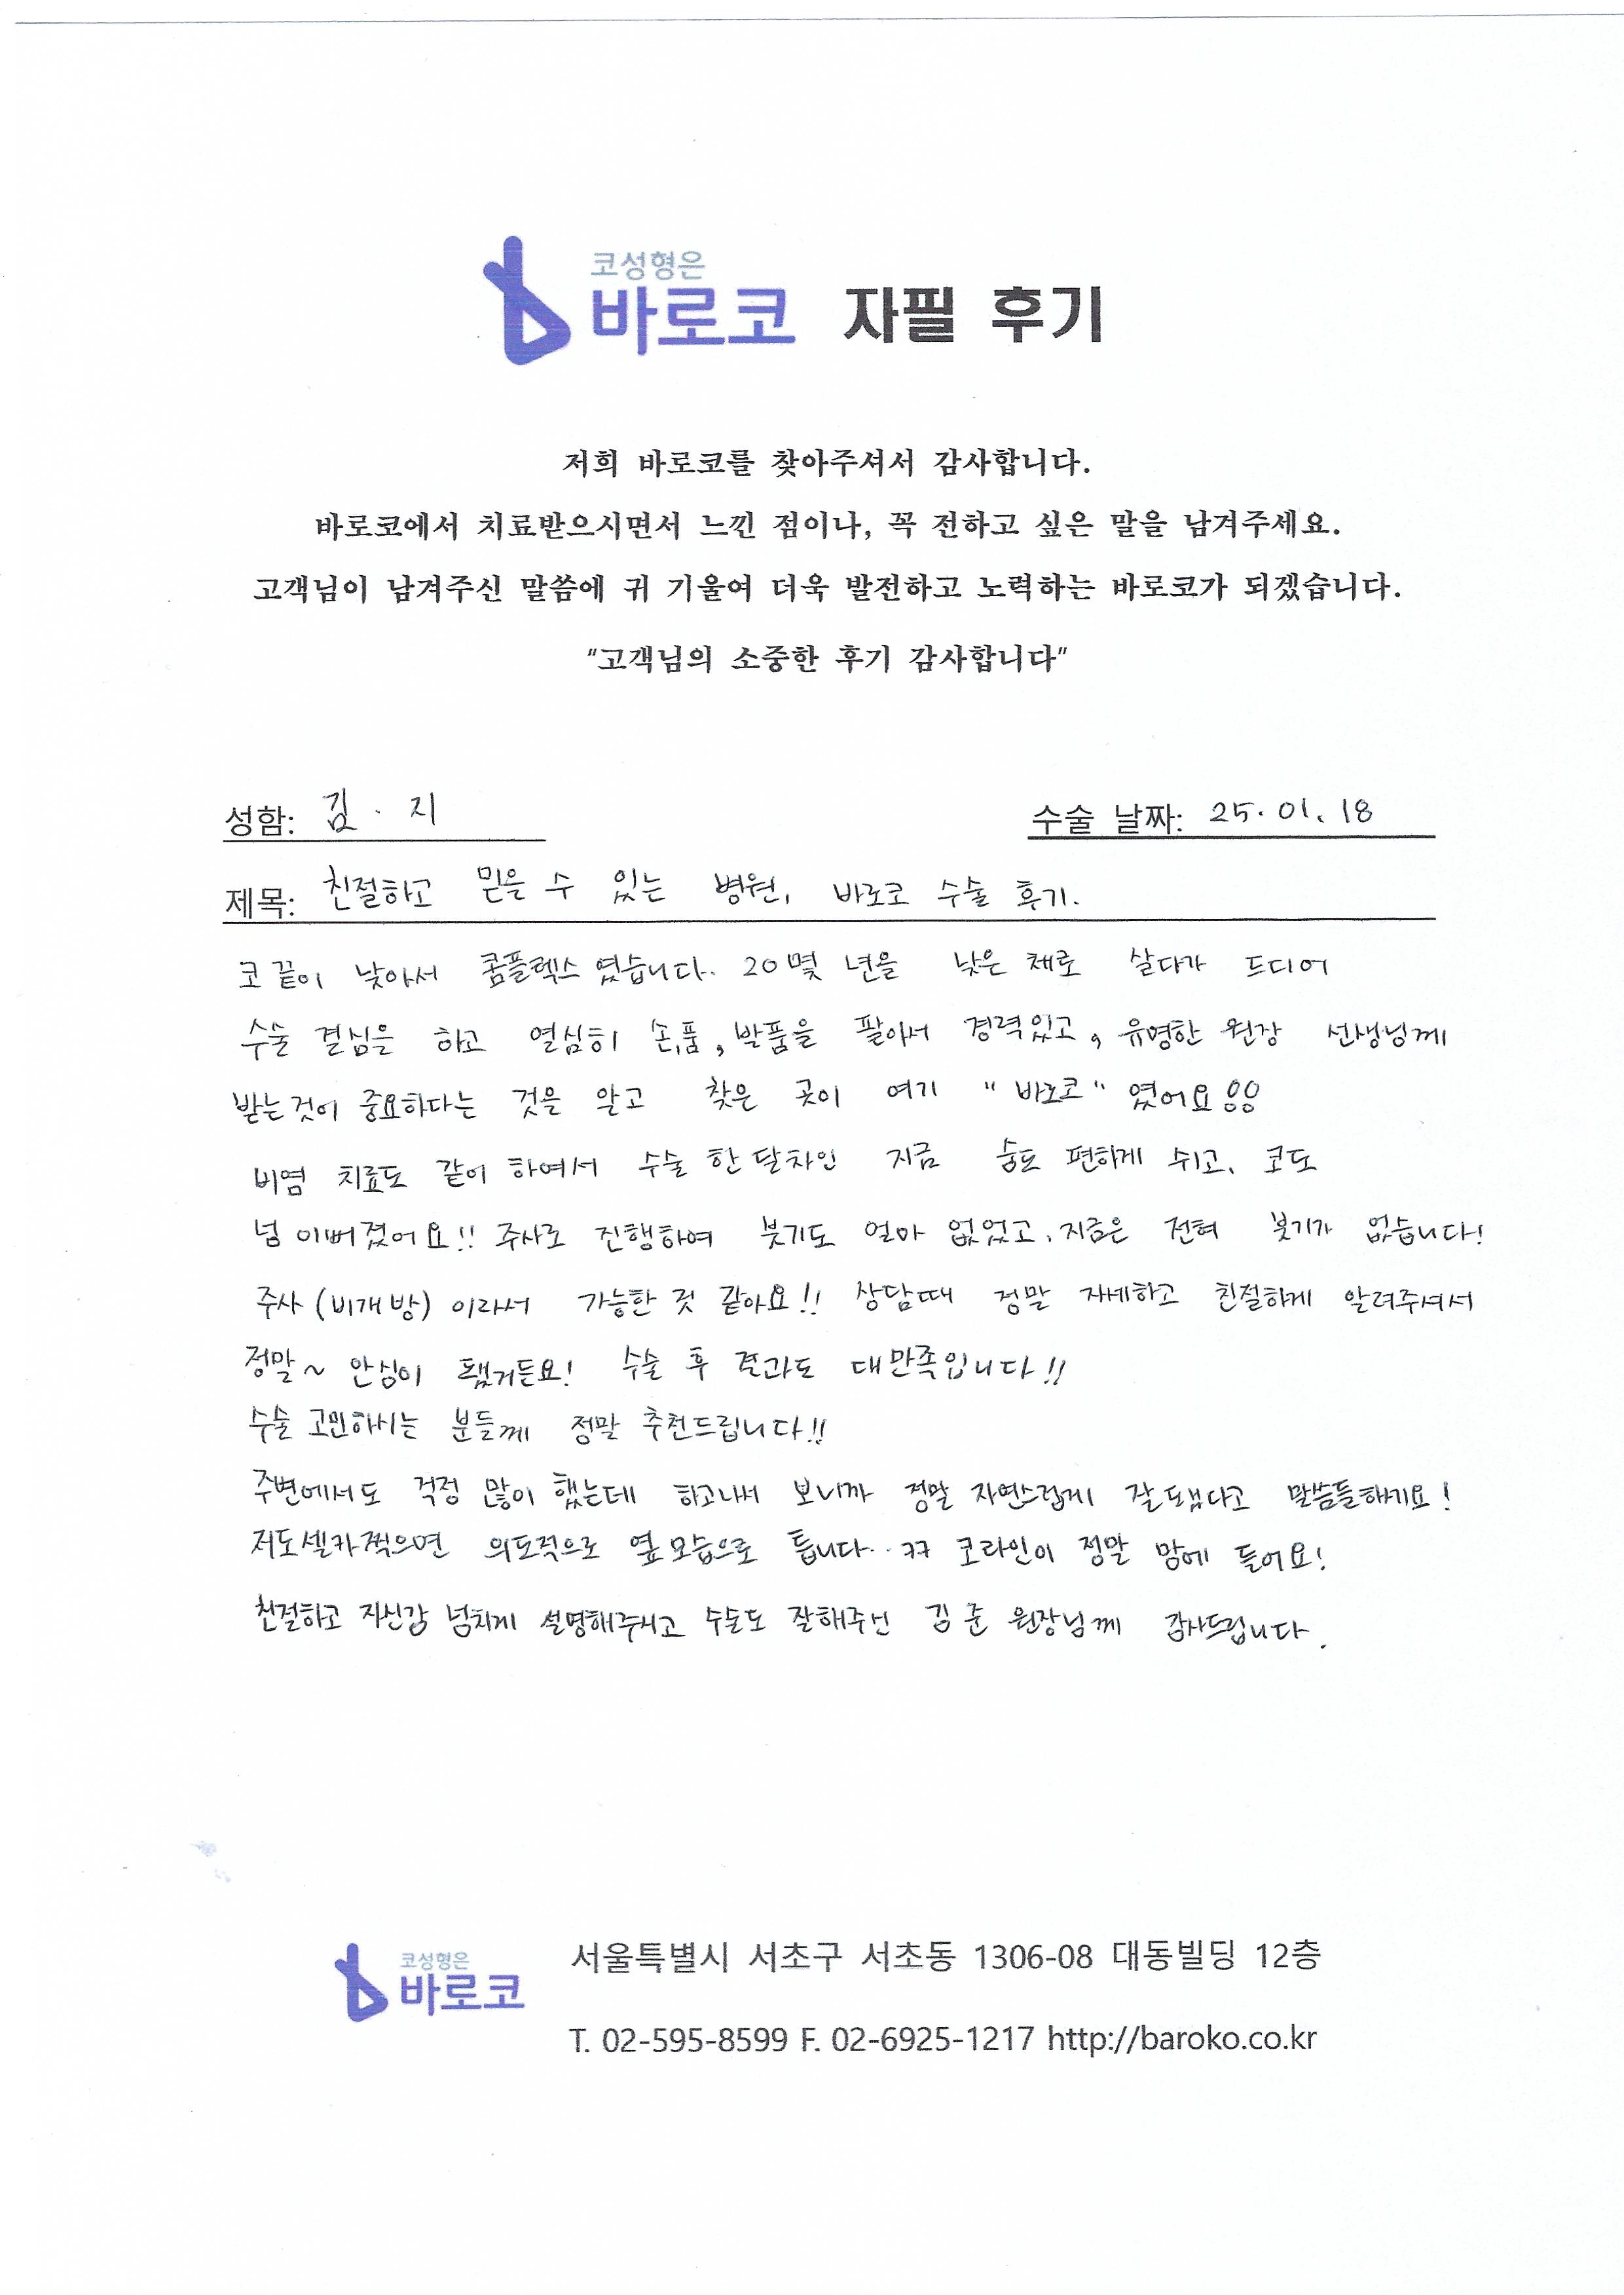 코성형은
바로코 자필 후기
저희 바로코를 찾아주셔서 감사합니다.
바로코에서 치료받으시면서 느낀 점이나, 꼭 전하고 싶은 말을 남겨주세요.
고객님이 남겨주신 말씀에 귀 기울여 더욱 발전하고 노력하는 바로코가 되겠습니다.
“고객님의 소중한 후기 감사합니다”
성함: 김 · 지 수술 날짜: 25. 01. 18
제목: 친절하고 믿을 수 있는 병원, 바로코 수술 후기.
코 끝이 낮아서 콤플렉스 였습니다. 20몇 년을 낮은 채로 살다가 드디어
수술 결심을 하고 열심히 손품, 발품을 팔아서 경력있고, 유명한 원장 선생님께
받는것이 중요하다는 것을 알고 찾은 곳이 여기 "바로코" 였어요!!
비염 치료도 같이 하여서 수술 한달차인 지금 숨도 편하게 쉬고, 코도
넘 이뻐졌어요!! 주사로 진행하여 붓기도 얼마 없었고, 지금은 전혀 붓기가 없습니다!
주사 (비개방) 이라서 가능한 것 같아요!! 상담때 정말 자세하고 친절하게 알려주셔서
정말~ 안심이 됐거든요! 수술 후 결과도 대만족입니다!!
수술 고민하시는 분들께 정말 추천드립니다!!
주변에서도 걱정 많이 했는데 하고나서 보니까 정말 자연스럽게 잘됐다고 말씀들하세요!
저도 셀카찍으면 의도적으로 옆모습으로 틉니다.. ㅋㅋ 코라인이 정말 맘에 들어요!
친절하고 자신감 넘치게 설명해주시고 수술도 잘해주신 김준 원장님께 감사드립니다.
코성형은
바로코
서울특별시 서초구 서초동 1306-08 대동빌딩 12층
T. 02-595-8599 F. 02-6925-1217 http://baroko.co.kr